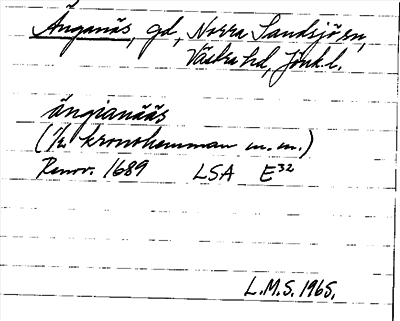 Änganäs, gd, Norra Sandsjö sn,
Västra hd, Jönk.l.
ängianääs
(1/2 kronohemman m.m.)
Renov. 1689 LSA E32
L.M.S. 1965.